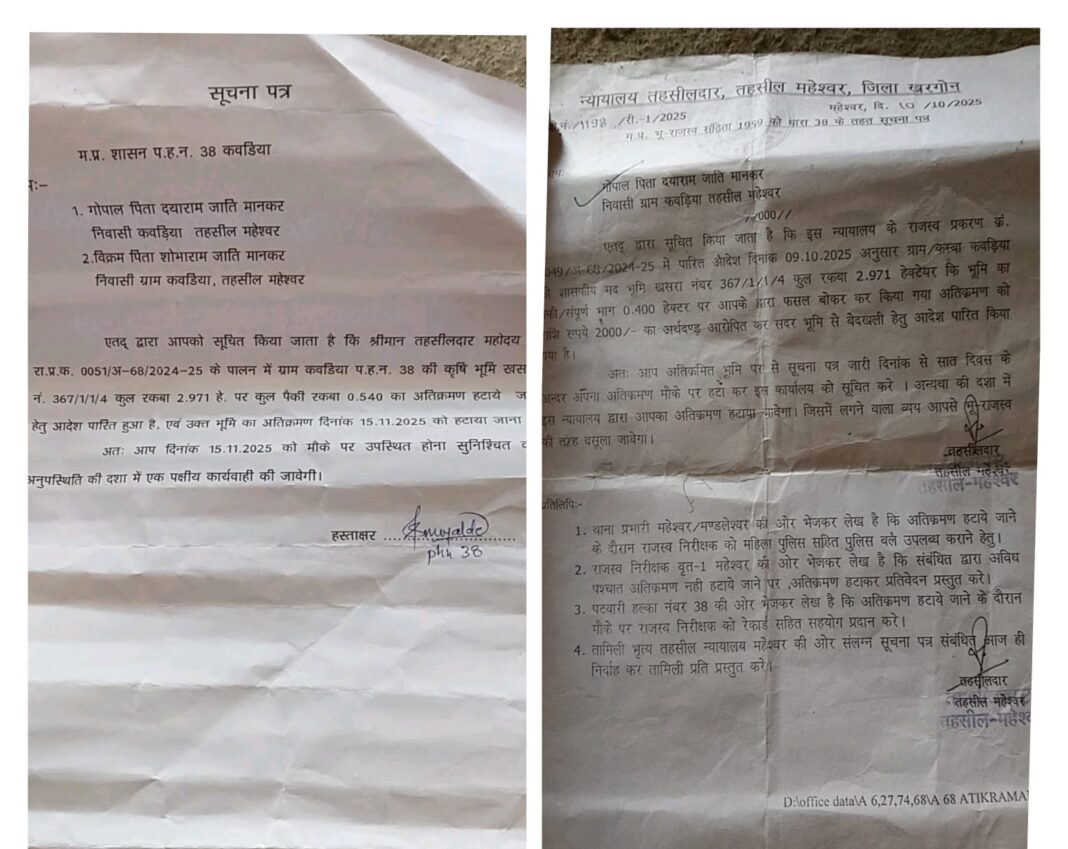 सूचना पत्र
म.प्र. शासन प.ह.न. 38 कवडिया
:–
1. गोपाल पिता दयाराम जाति मानकर
निवासी कवड़िया तहसील महेश्वर
2.विक्रम पिता शोभाराम जाति मानकर
निवासी ग्राम कवडिया, तहसील महेश्वर
एतद् द्वारा आपको सूचित किया जाता है कि श्रीमान तहसीलदार महोदय
रा.प्र.क. 0051/अ–68/2024-25 के पालन में ग्राम कवडिया प.ह.न. 38 की कृषि भूमि खस
नं. 367/1/1/4 कुल रकबा 2.971 हे. पर कुल पैकी रकबा 0.540 का अतिक्रमण हटाये
हेतु आदेश पारित हुआ है, एवं उक्त भूमि का अतिक्रमण दिनांक 15.11.2025 को हटाया जाना
अतः आप दिनांक 15.11.2025 को मौके पर उपस्थित होना सुनिश्चित
अनुपस्थिति की दशा में एक पक्षीय कार्यवाही की जावेगी।
हस्ताक्षर
phn 38
न्यायालय तहसीलदार, तहसील महेश्वर, जिला खरगोन
/1198 /री.-1/2025
महेश्वर, दि. 10 /10/2025
म.प्र. भू-राजस्व संहिता 1959 की धारा 38 के तहत सूचना पत्र
गोपाल पिता दयाराम जाति मानकर
निवासी ग्राम कवड़िया तहसील महेश्वर
//000//
एतद् द्वारा सूचित किया जाता है कि इस न्यायालय के राजस्व प्रकरण क्रं.
049/अ-68/2024-25 में पारित आदेश दिनांक 09.10.2025 अनुसार ग्राम/कस्बा कवड़िया
शासकीय मद भूमि खसरा नंबर 367/1/1/4 कुल रकबा 2.971 हेक्टेयर कि भूमि का
की/संपूर्ण भाग 0.400 हेक्टर पर आपके द्वारा फसल बोकर कर किया गया अतिक्रमण को
शि रूपये 2000/- का अर्थदण्ड आरोपित कर सदर भूमि से बेदखली हेतु आदेश पारित किया
या है।
अतः आप अतिक्रमित भूमि पर से सूचना पत्र जारी दिनांक से सात दिवस के
अन्दर अपना अतिक्रमण मौके पर हटा कर इस कार्यालय को सूचित करे । अन्यथा की दशा में
इस न्यायालय द्वारा आपका अतिक्रमण हटाया जावेगा। जिसमें लगने वाला व्यय आपसे भू राजस्व
की तरह वसूला जावेगा।
तहसीलदार
तहसील महेश्वर
तहसील-महेश्वर
प्रतिलिपि:-
1. थाना प्रभारी महेश्वर/मण्डलेश्वर की ओर भेजकर लेख है कि अतिक्रमण हटाये जाने
के दौरान राजस्व निरीक्षक को महिला पुलिस सहित पुलिस बल उपलब्ध कराने हेतु।
2. राजस्व निरीक्षक वृत-1 महेश्वर की ओर भेजकर लेख है कि संबंधित द्वारा अवधि
पश्चात अतिक्रमण नही हटाये जाने पर ,अतिक्रमण हटाकर प्रतिवेदन प्रस्तुत करे।
3. पटवारी हल्का नंबर 38 की ओर भेजकर लेख है कि अतिक्रमण हटाये जाने के दौरान
मौके पर राजस्व निरीक्षक को रेकार्ड सहित सहयोग प्रदान करे।
4. तामिली भृत्य तहसील न्यायालय महेश्वर की ओर संलग्न सूचना पत्र संबंधित आज ही
निर्वाह कर तामिली प्रति प्रस्तुत करे।
तहसीलदार
तहसील महेश्वर
तहसील-महेश्व
D:\office data\A 6,27,74,68\A 68 ATIKRAMA